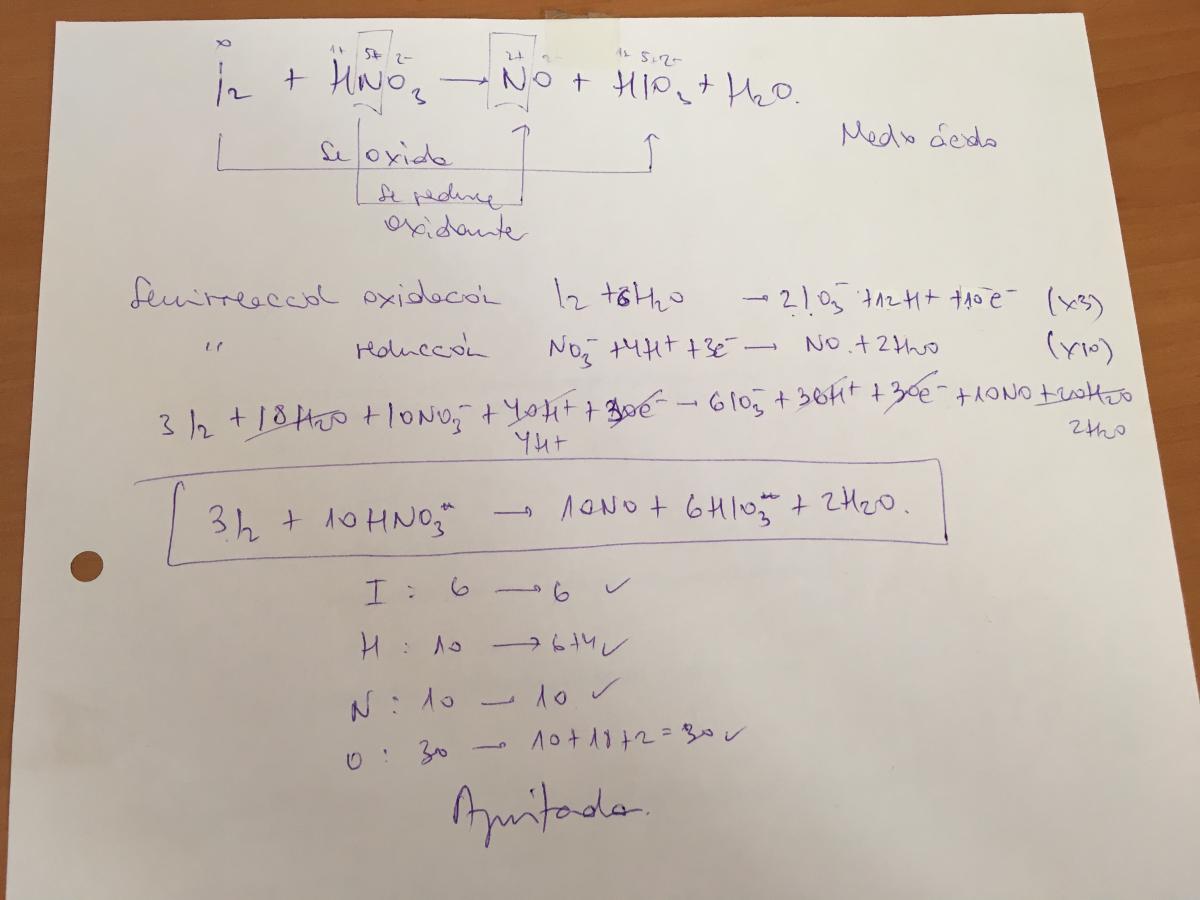 x0
I2 + HNO3 → NO + HIO3 + H2O.
1+ 5+ 2- 2+ 2- 1+ 5+ 2-
Medio ácido
Se oxida
Se reduce
oxidante
Semirreacción oxidación I2 + 6H2O → 2IO3⁻ + 12H⁺ + 10e⁻ (x3)
" reducción NO3⁻ + 4H⁺ + 3e⁻ → NO + 2H2O (x10)
3I2 + 18H2O + 10NO3⁻ + 40H⁺ + 30e⁻ → 6IO3⁻ + 36H⁺ + 30e⁻ + 10NO + 20H2O
4H⁺ 2H2O
3I2 + 10HNO3 → 10NO + 6HIO3 + 2H2O.
I : 6 → 6 ✓
H : 10 → 6+4 ✓
N : 10 → 10 ✓
O : 30 → 10+18+2=30 ✓
Ajustada.